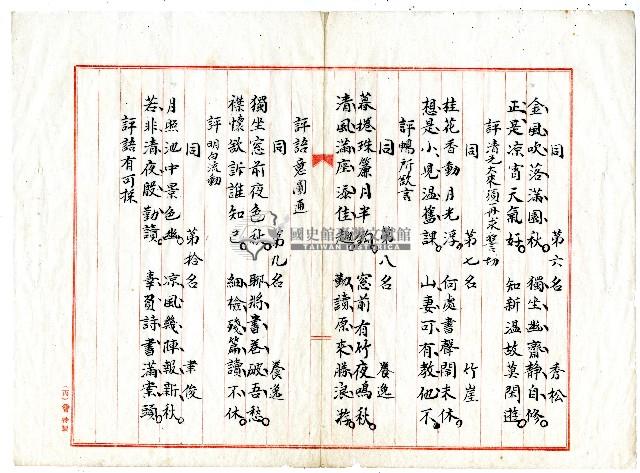 同　第六名　秀松
金風吹落滿園秋。獨坐幽齋靜自修。
正是凉宵天氣好。知新溫故莫閑遊。
評
同　第七名　竹崖
桂花香動月光浮。何處書聲閙未休。
想是小兒溫舊課。山妻可有教他不。
評暢所欲言
同　第八名　養逸
暮捲珠簾月半鈎。窓前有竹夜鳴秋。
清風滿座添佳趣。勤讀原來勝浪遊。
評語意圓通
同　第九名　養逸
獨坐窓前夜色幽。聊將書卷破吾愁。
襟懷欲訴誰知己。細檢殘篇讀不休。
評 明白流動
同　第拾名　聿俊
月照池中景色幽。凉風幾陣報新秋。
若非清夜殷勤讀。辜負詩書滿案頭。
評語有可採
國史館臺灣文獻館
TAIWAN HISTORICA